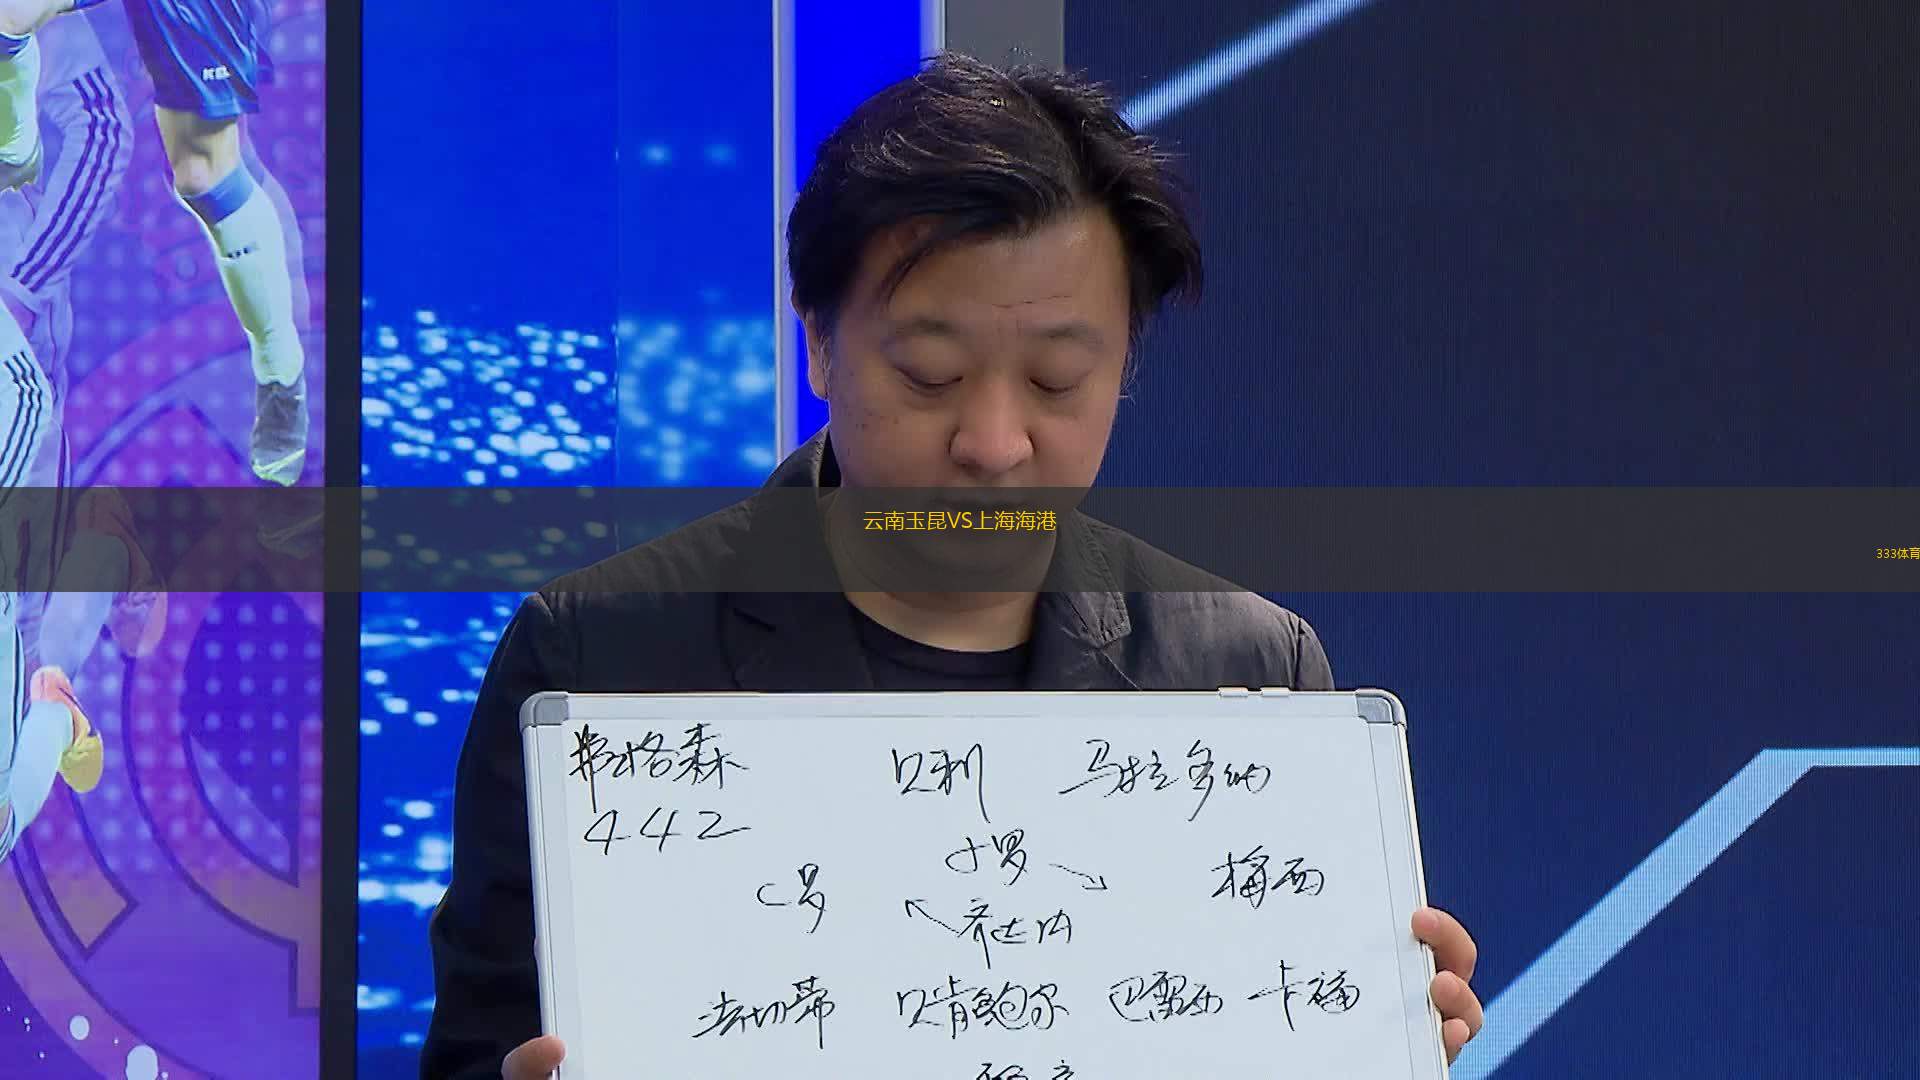 云南玉昆VS上海海港
333体育
弗格森 贝利 马拉多纳
442
小罗
C罗 梅西
齐达内
法切蒂 贝肯鲍尔 巴雷西 卡福